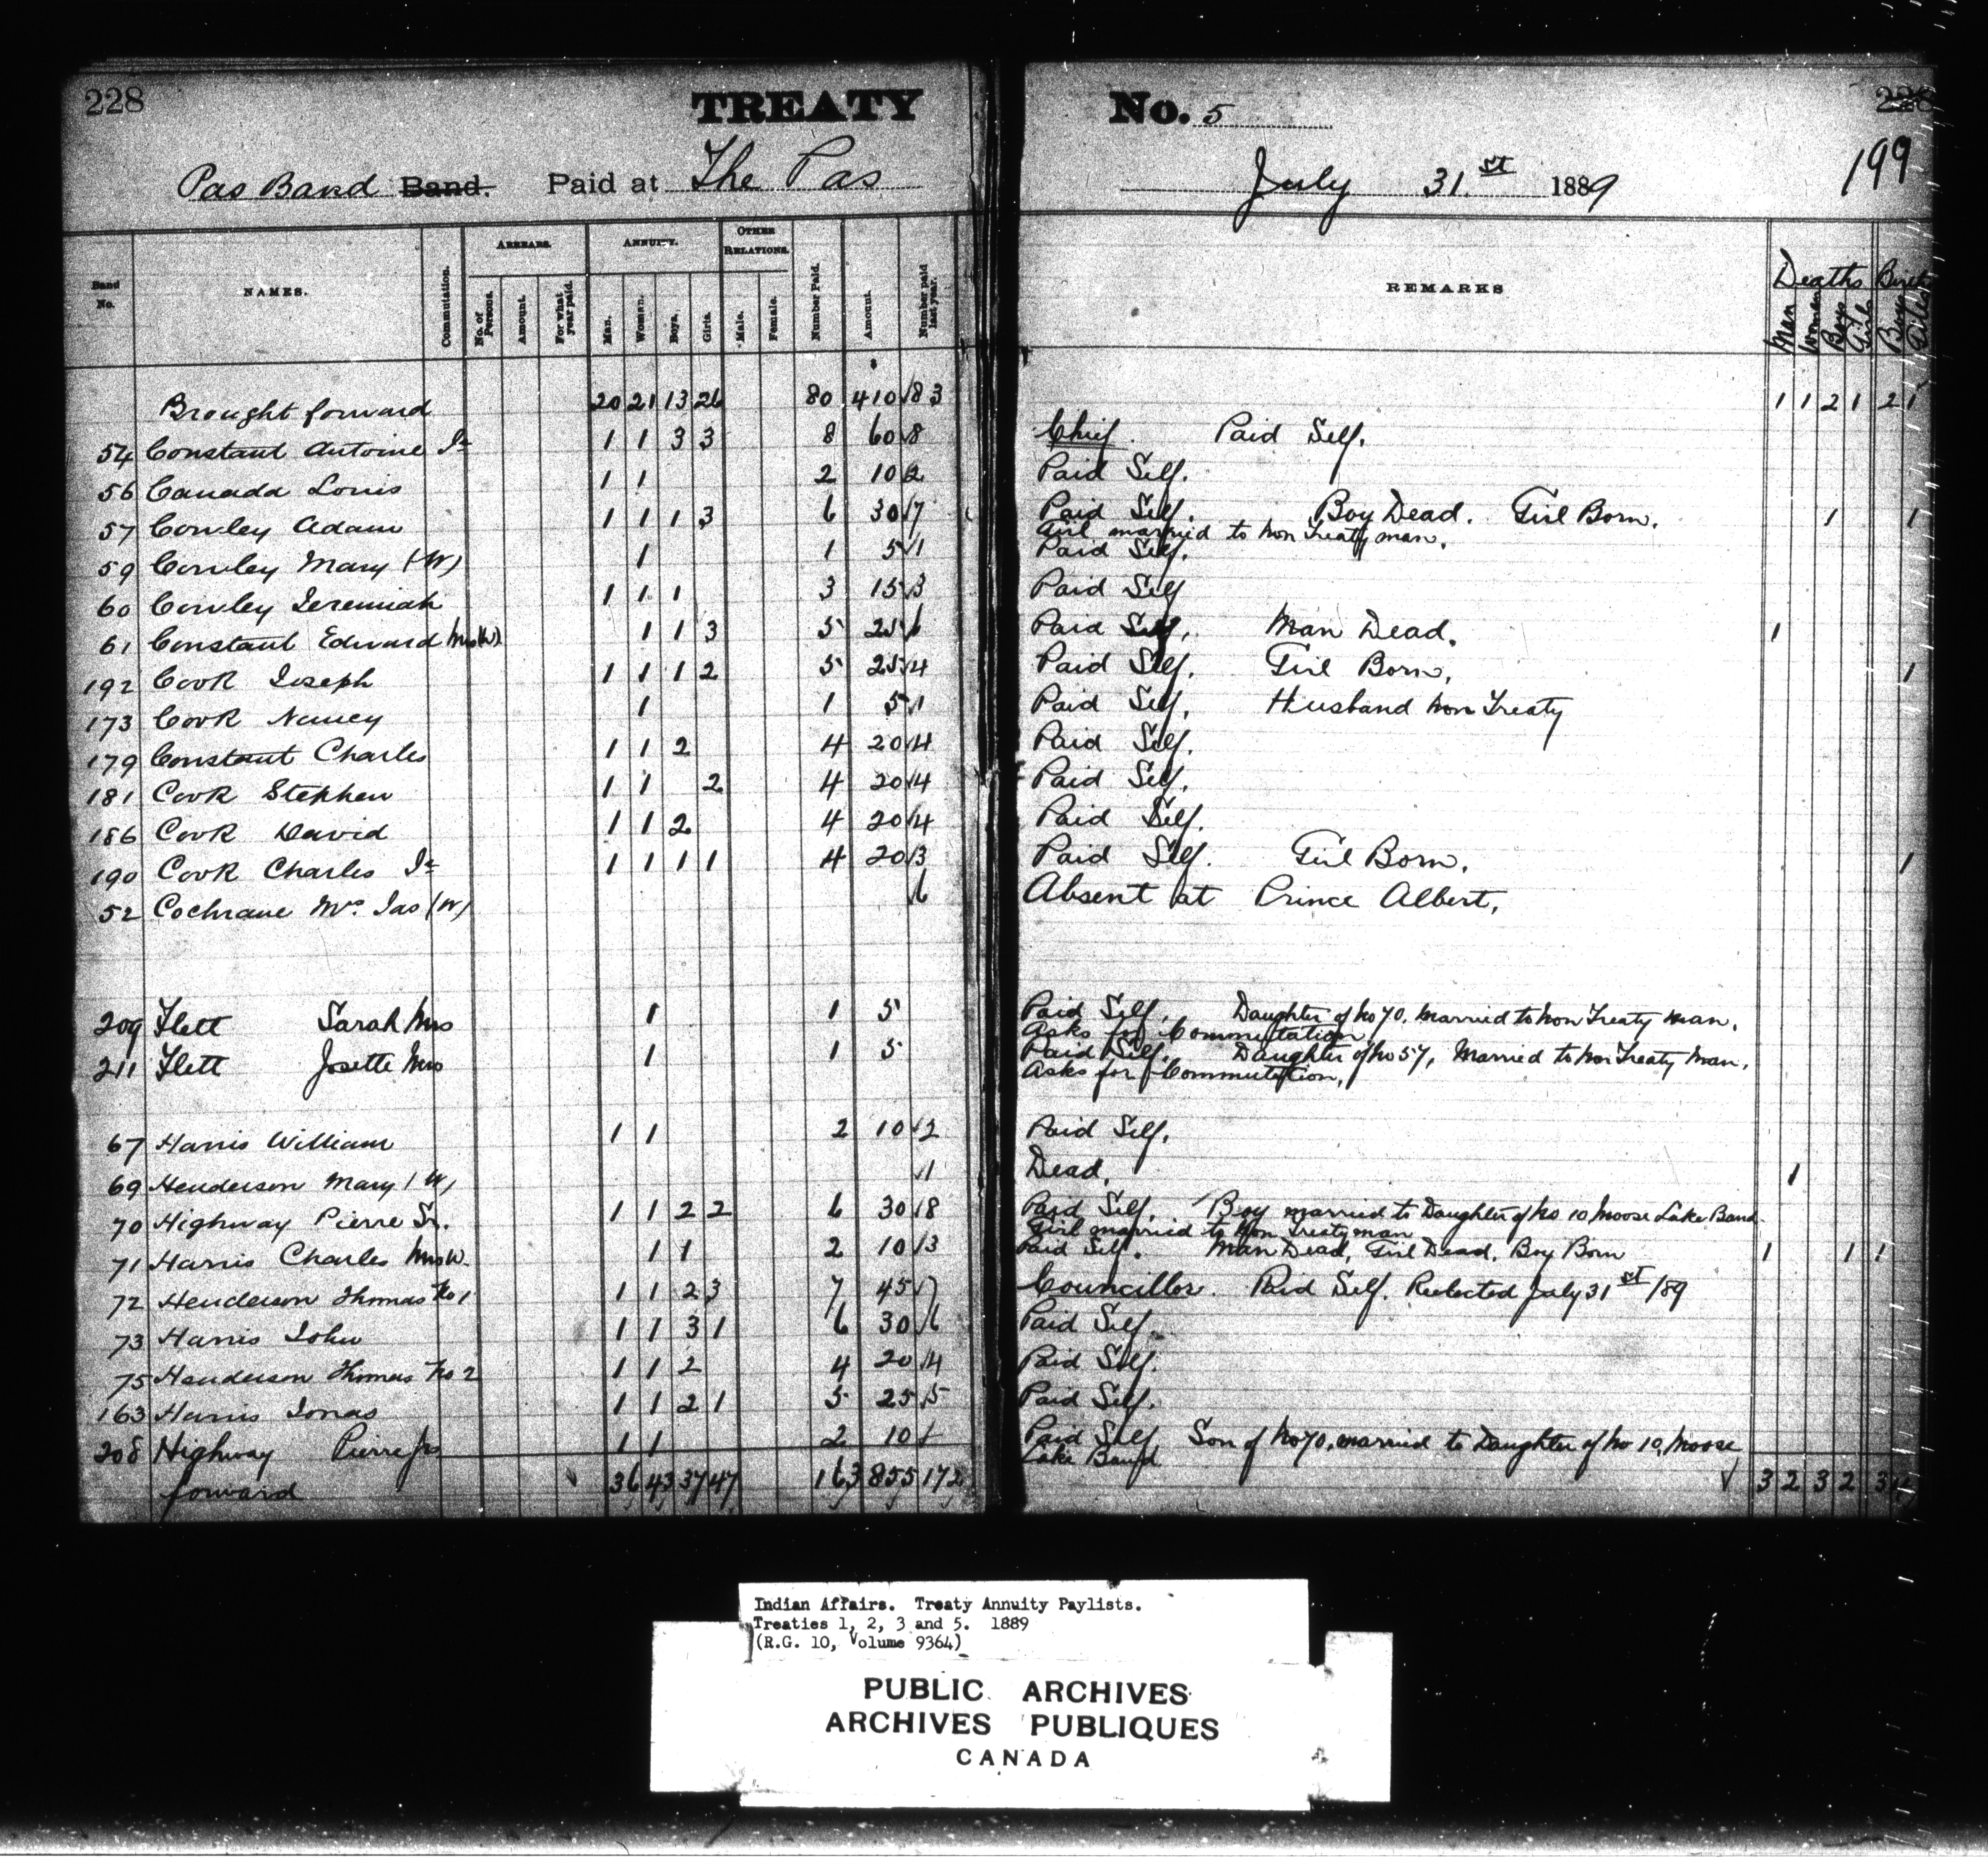 228 TREATY No. 5 228
199
Pas Band Band. Paid at The Pas July 31st 1889
Band No. NAMES. Commutation. ARREARS. No. of Persons. Amount. For what year paid. ANNUITY. Man. Woman. Boys. Girls. OTHER RELATIONS. Male. Female. Number Paid. Amount. Number paid last year. REMARKS Deaths Man Women Boys Girls Births Boys Girls
$
Brought forward 20 21 13 26 80 410 83 1 1 2 1 2 1
54 Constant Antoine Jr 1 1 3 3 8 60 8 Chief. Paid Self.
56 Canada Louis 1 1 2 10 2 Paid Self.
57 Cowley Adam 1 1 1 3 6 30 7 Paid Self. Boy Dead. Girl Born. 1 1
Girl married to non Treaty man.
59 Cowley Mary (W) 1 1 5 1 Paid Self.
60 Cowley Jeremiah 1 1 1 3 15 3 Paid Self
61 Constant Edward Mrs (W) 1 1 3 5 25 6 Paid Self. Man Dead. 1
192 Cook Joseph 1 1 1 2 5 25 4 Paid Self. Girl Born. 1
173 Cook Nancy 1 1 5 1 Paid Self. Husband non Treaty
179 Constant Charles 1 1 2 4 20 4 Paid Self.
181 Cook Stephen 1 1 2 4 20 4 Paid Self.
186 Cook David 1 1 2 4 20 4 Paid Self.
190 Cook Charles Jr 1 1 1 1 4 20 3 Paid Self. Girl Born. 1
52 Cochrane Mrs Jas (W) 6 Absent at Prince Albert.
209 Flett Sarah Mrs 1 1 5 Paid Self. Daughter of No 70. Married to Non Treaty Man.
Asks for Commutation
211 Flett Josette Mrs 1 1 5 Paid Self. Daughter of No 57, Married to Non Treaty Man.
Asks for Commutation.
67 Harris William 1 1 2 10 2 Paid Self.
69 Henderson Mary (W) 1 Dead. 1
70 Highway Pierre Sr. 1 1 2 2 6 30 8 Paid Self. Boy married to Daughter of No 10 Moose Lake Band.
Girl married to Non Treaty man
71 Harris Charles Mrs W. 1 1 2 10 3 Paid Self. Man Dead, Girl Dead, Boy Born 1 1 1
72 Henderson Thomas No 1 1 1 2 3 7 45 7 Councillor. Paid Self. Reelected July 31st /89
73 Harris John 1 1 3 1 6 30 6 Paid Self.
75 Henderson Thomas No 2 1 1 2 4 20 4 Paid Self.
163 Harris Jonas 1 1 2 1 5 25 5 Paid Self.
208 Highway Pierre Jr 1 1 2 10 Paid Self Son of No 70, married to Daughter of No 10, Moose
Lake Band
forward 36 43 37 47 163 855 172 3 2 3 2 3
Indian Affairs. Treaty Annuity Paylists.
Treaties 1, 2, 3 and 5. 1889
(R.G. 10, Volume 9364)
PUBLIC ARCHIVES
ARCHIVES PUBLIQUES
CANADA